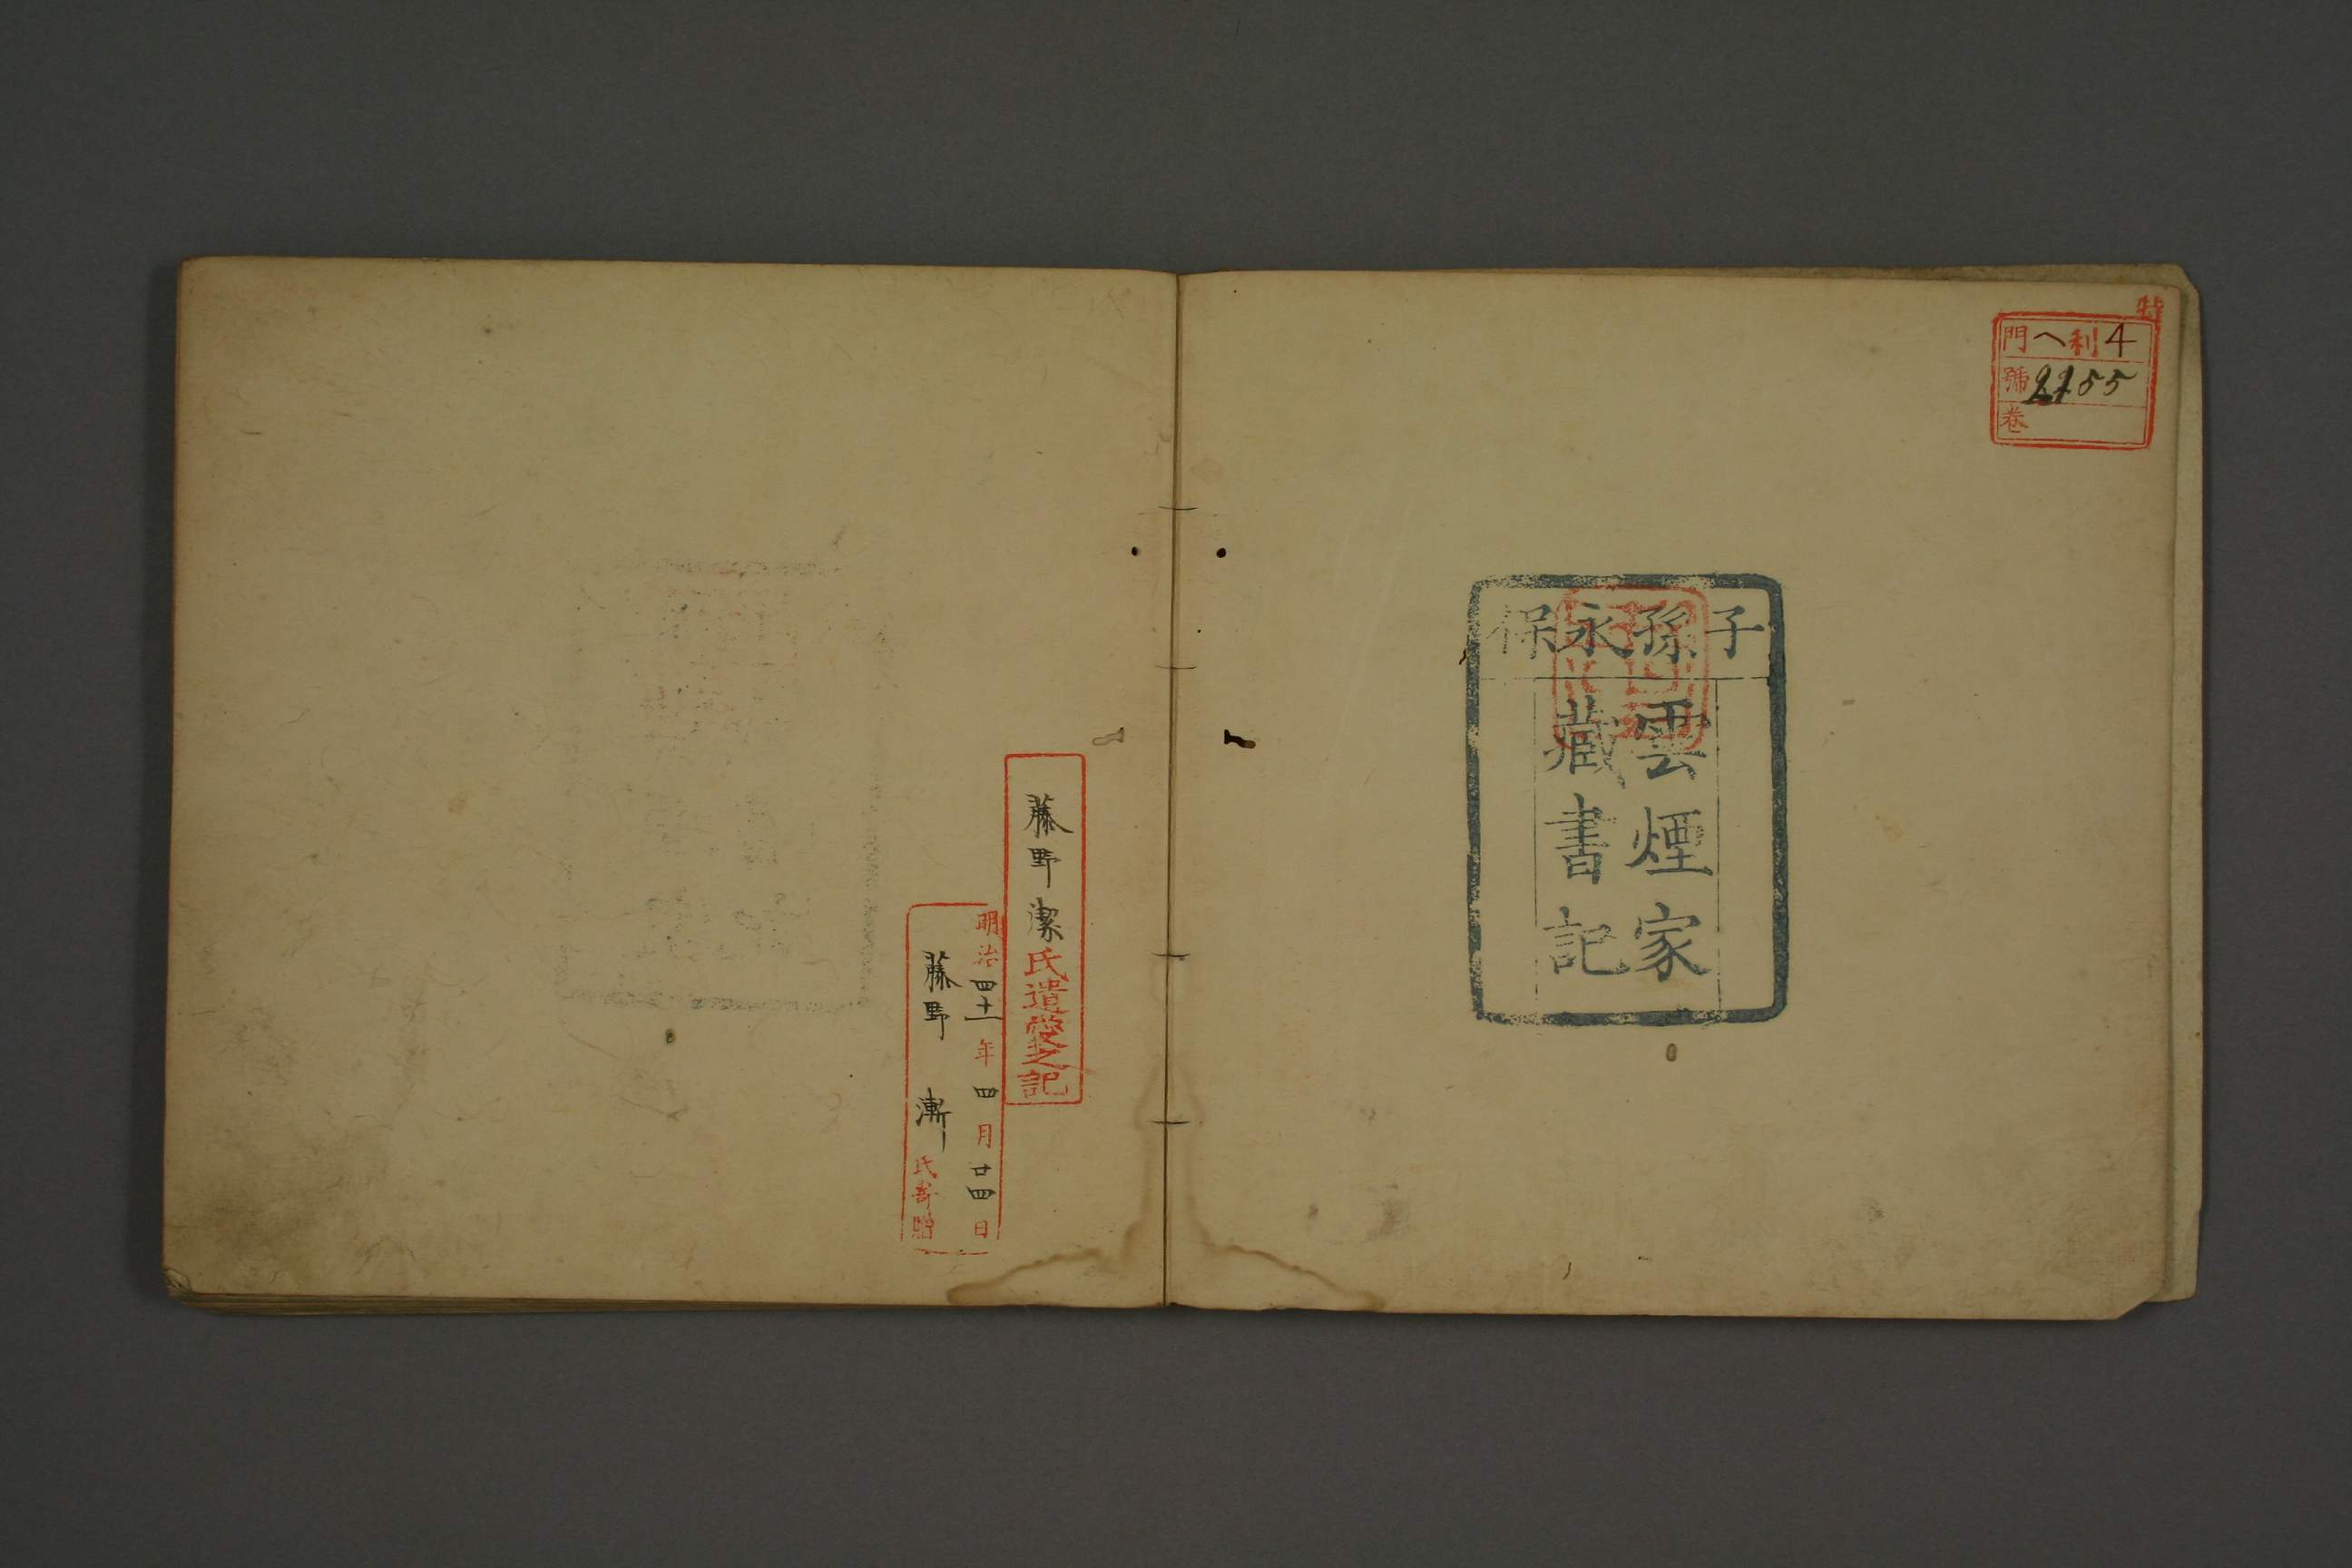 特
門 ヘ利4
號 2155
卷
子孫永保
雲煙家
藏書記
藤野潔氏遺愛之記
明治四十一年四月廿四日
藤野漸氏寄贈